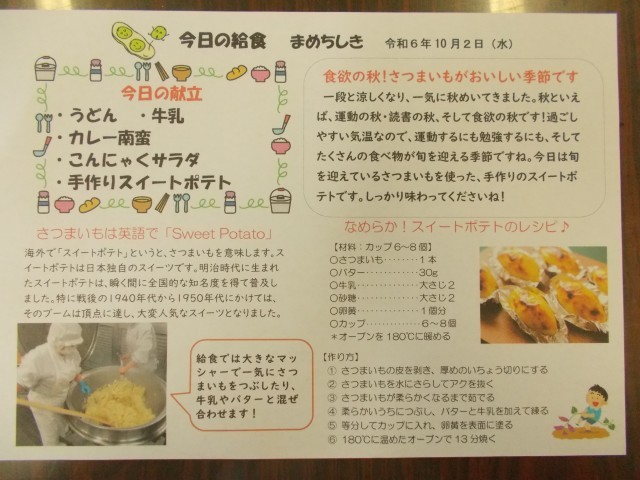 今日の給食　まめちしき　令和6年10月2日（水）
今日の献立
・うどん　・牛乳
・カレー南蛮
・こんにゃくサラダ
・手作りスイートポテト
食欲の秋！さつまいもがおいしい季節です
一段と涼しくなり、一気に秋めいてきました。秋といえ
ば、運動の秋・読書の秋、そして食欲の秋です！過ごし
やすい気温なので、運動するにも勉強するにも、そして
たくさんの食べ物が旬を迎える季節ですね。今日は旬
を迎えているさつまいもを使った、手作りのスイートポ
テトです。しっかり味わってくださいね！
さつまいもは英語で「Sweet Potato」
海外で「スイートポテト」というと、さつまいもを意味します。ス
イートポテトは日本独自のスイーツです。明治時代に生まれ
たスイートポテトは、瞬く間に全国的な知名度を得て普及し
ました。特に戦後の1940年代から1950年代にかけては、
そのブームは頂点に達し、大変人気なスイーツとなりました。
給食では大きなマッ
シャーで一気にさつ
まいもをつぶしたり、
牛乳やバターと混ぜ
合わせます！
なめらか！スイートポテトのレシピ♪
【材料：カップ6～8個】
○さつまいも・・・・・・・・1本
○バター・・・・・・・・・・・30g
○牛乳・・・・・・・・・・・・・大さじ2
○砂糖・・・・・・・・・・・・・大さじ2
○卵黄・・・・・・・・・・・・・1個分
○カップ・・・・・・・・・・・6～8個
＊オーブンを180℃に暖める
【作り方】
① さつまいもの皮を剥き、厚めのいちょう切りにする
② さつまいもを水にさらしてアクを抜く
③ さつまいもが柔らかくなるまで茹でる
④ 柔らかいうちにつぶし、バターと牛乳を加えて練る
⑤ 等分してカップに入れ、卵黄を表面に塗る
⑥ 180℃に温めたオーブンで13分焼く